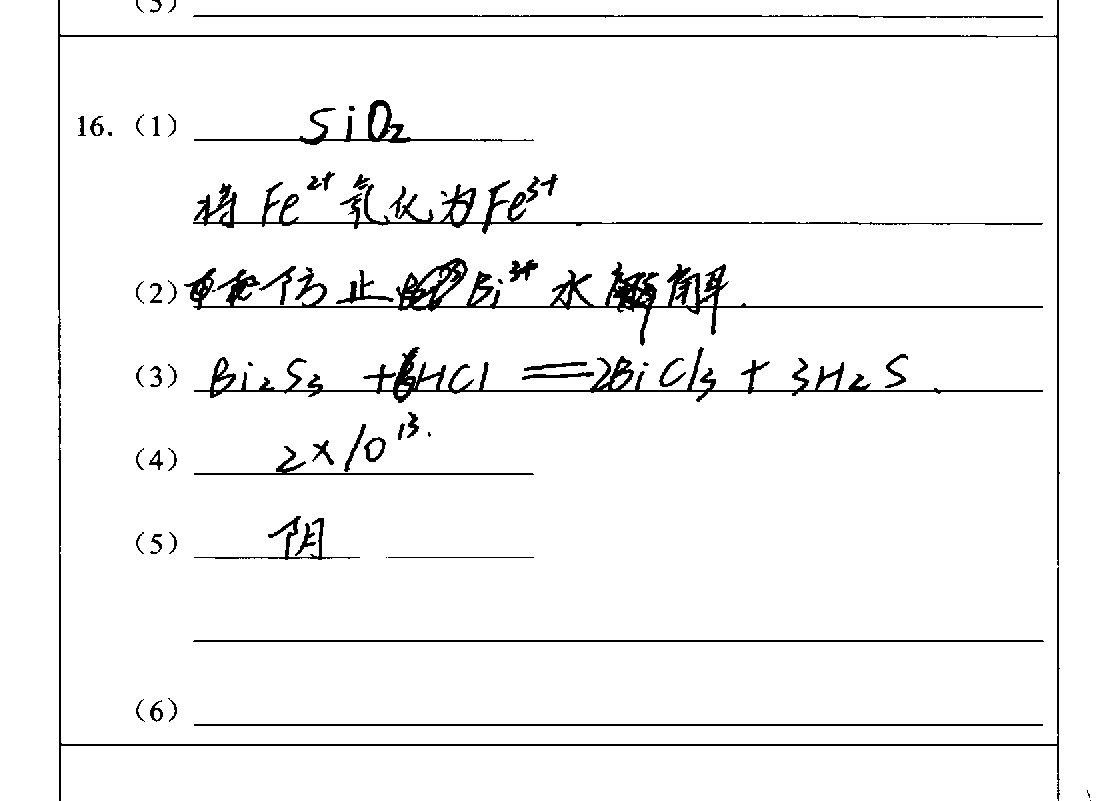 (3)
16.（1） SiO₂
将Fe²⁺氧化为Fe³⁺.
（2） 防止 Bi³⁺ 水解.
（3） Bi₂S₃ + 6HCl == 2BiCl₃ + 3H₂S.
（4） 2×10¹³.
（5） 阴
（6）